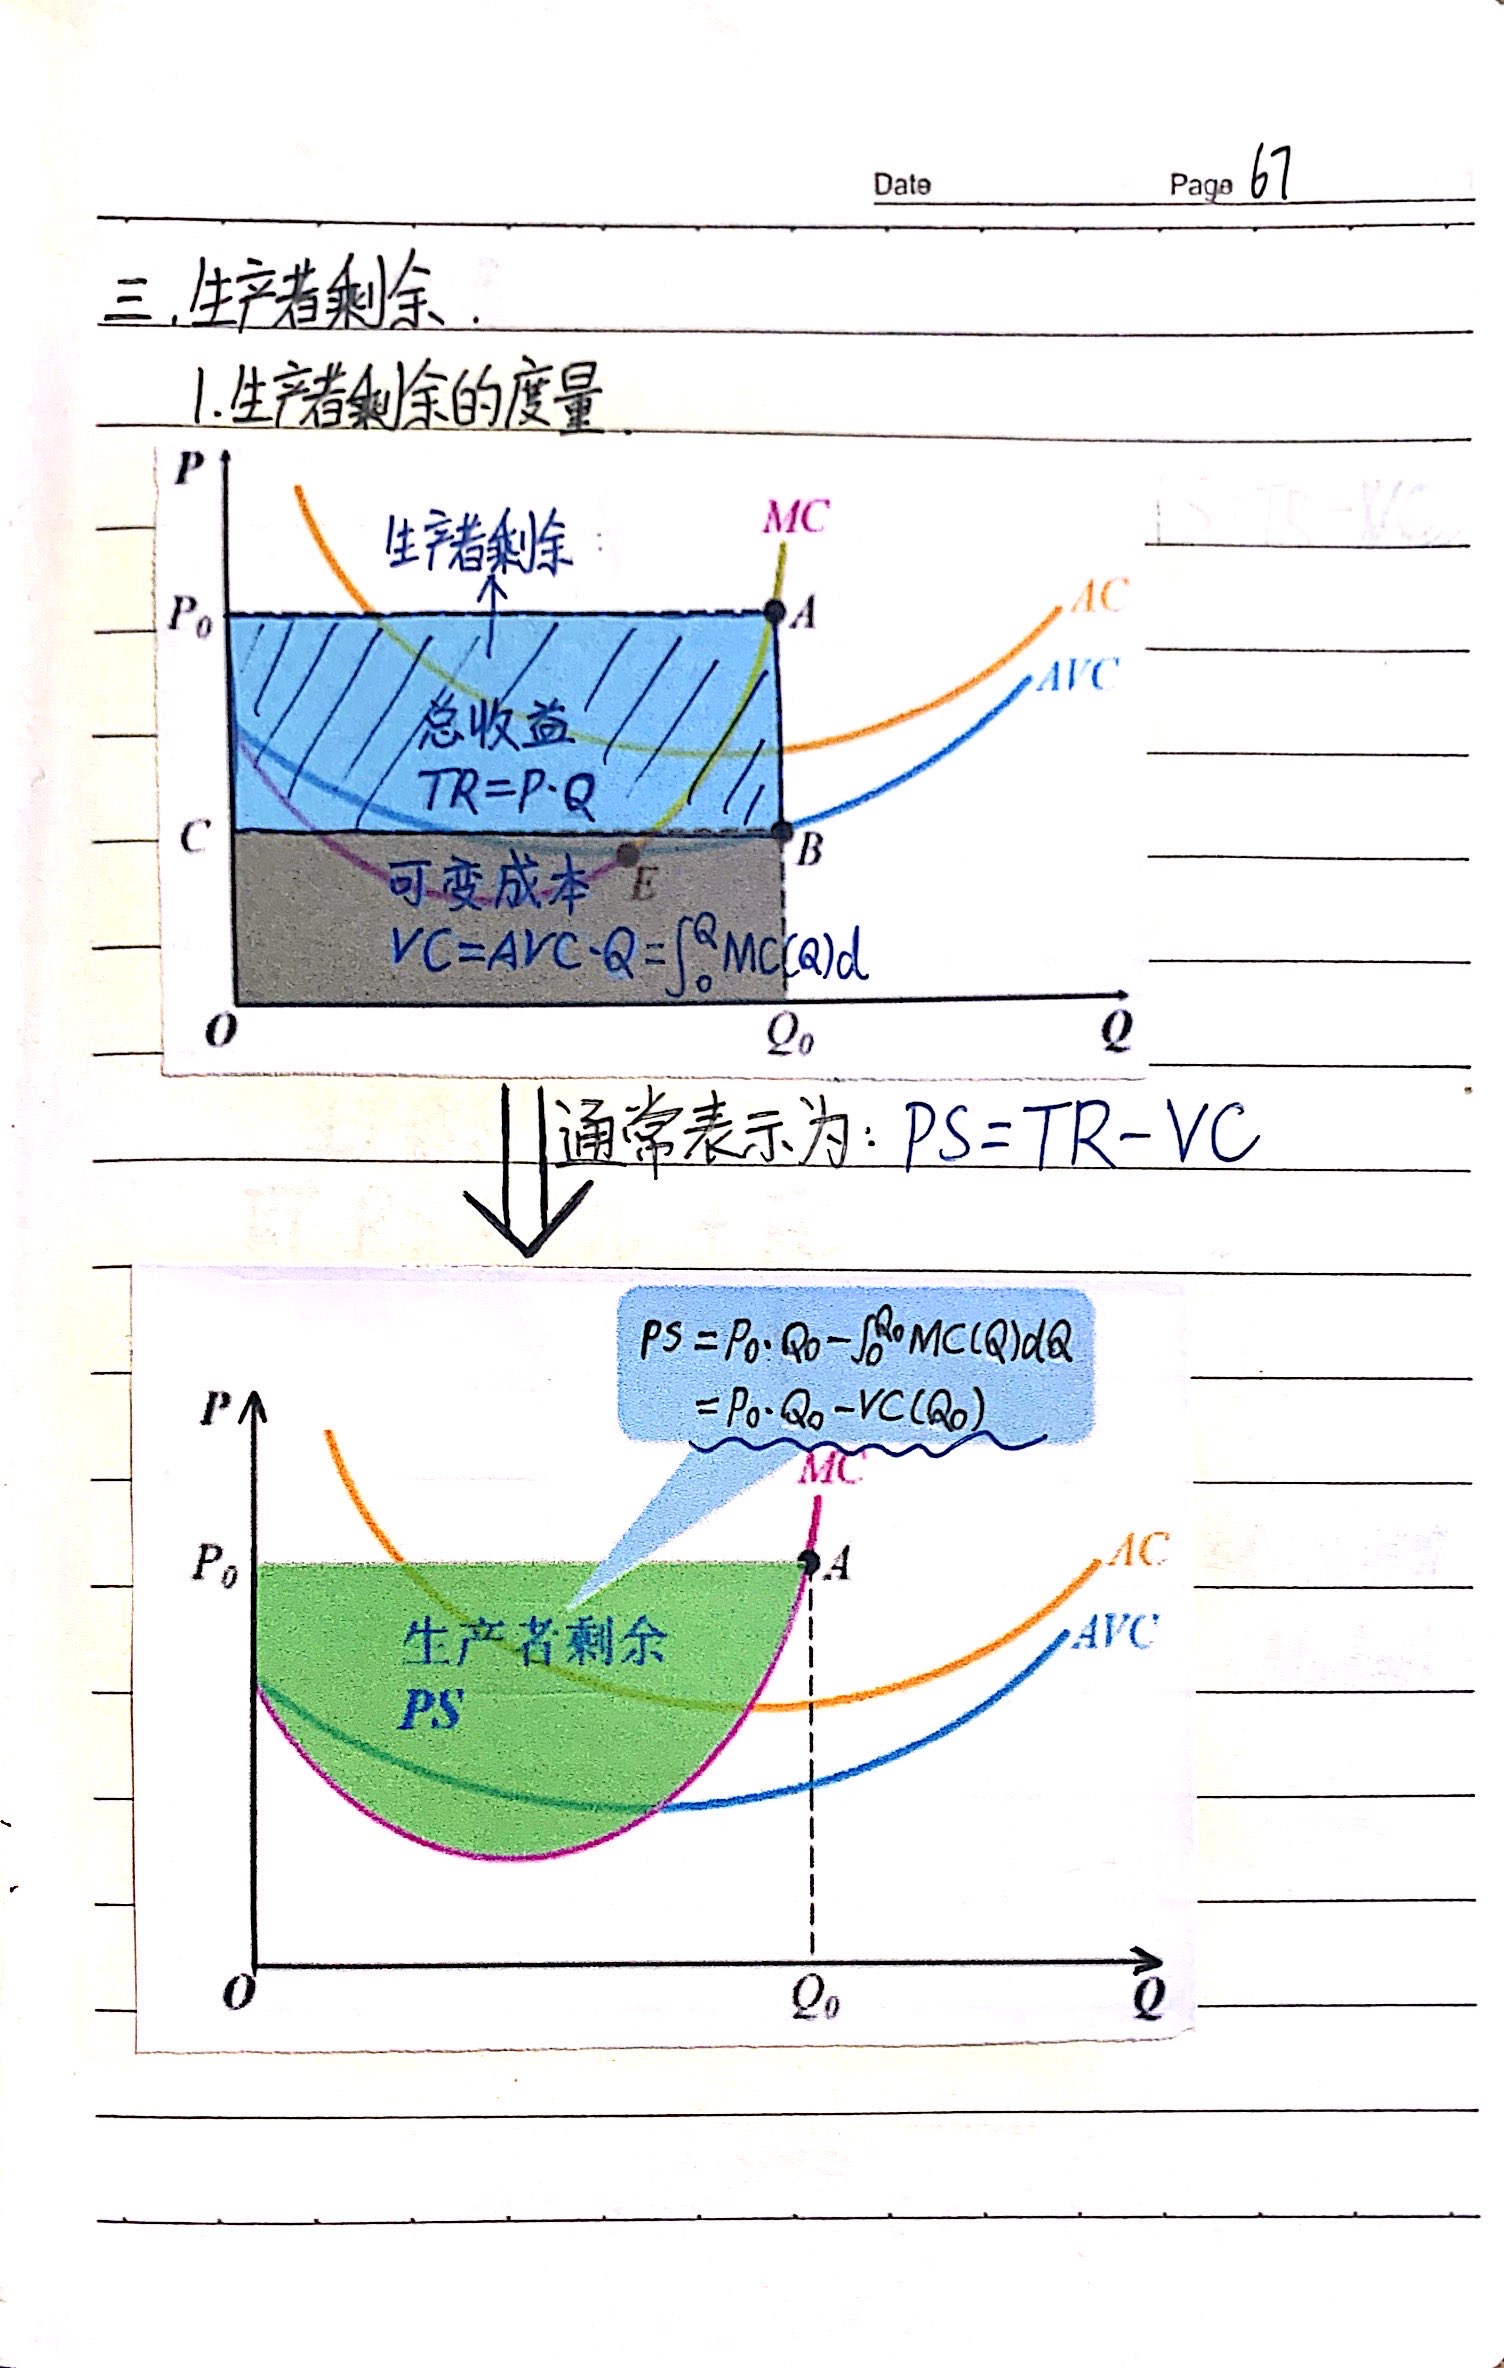 Date Page 67
三.生产者剩余.
1.生产者剩余的度量.
P
生产者剩余
MC
P₀ A AC
AVC
总收益
TR=P·Q
C B
可变成本 E
VC=AVC·Q=∫₀^Q MC(Q)d
O Q₀ Q
通常表示为: PS=TR-VC
PS=P₀·Q₀-∫₀^Q₀ MC(Q)dQ
P =P₀·Q₀-VC(Q₀)
MC
P₀ A AC
生产者剩余 AVC
PS
O Q₀ Q